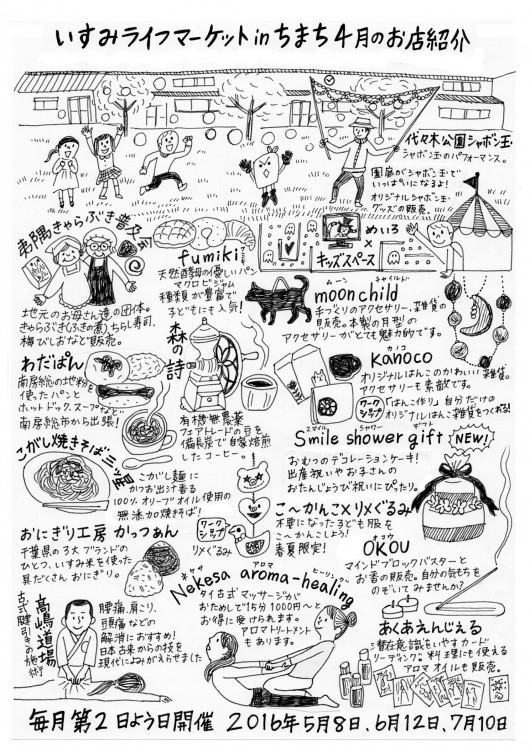 いすみライフマーケットinちまち4月のお店紹介
代々木公園シャボン玉
シャボン玉のパフォーマンス。
園庭がシャボン玉で
いっぱいになるよ!
オリジナルシャボン玉
グッズの販売。
めいろ
×
キッズスペース
夷隅きゃらぶき普及会
地元のお母さん達の団体。
きゃらぶき(ふきの煮)ちらし寿司、
梅びしおなど販売。
fumiki
天然酵母の優しいパン
マクロビジャム
種類が豊富で
子どもにも人気!
ムーン チャイルド
moonchild
手づくりのアクセサリー、雑貨の
販売。木製の月型の
アクセサリーがとても魅力的です。
わだぱん
南房総の地粉を
使ったパンと
ホットドック、スープなど。
南房総市から出張!
森の詩
有機無農薬
フェアトレードの豆を
備長炭で自家焙煎
したコーヒー。
カノコ
kanoco
オリジナルはんこのかわいい雑貨。
アクセサリーも素敵です。
ワークショップ
「はんこ作り」自分だけの
オリジナルはんこ雑貨をつくれる!
スマイル シャワー ギフト
Smile shower gift NEW!
おむつのデコレーションケーキ!
出産祝いやお子さんの
おたんじょうび祝いにぴったり。
こがし焼きそば三ツ星
こがし麺に
かつお出汁香る
100%オリーブオイル使用の
無添加焼きそば!
こ〜かんこ×リメぐるみ
不要になった子ども服を
こ〜かんこしよう!
春夏限定!
ワークショップ
リメぐるみ
おにぎり工房 かっつあん
千葉県の3大ブランドの
ひとつ、いすみ米を使った
具だくさんおにぎり。
オコウ
OKOU
マインドブロックバスターと
お香の販売。自分の気もちを
のぞいてみませんか?
高嶋道場
古式腱引きの施術
腰痛、肩こり、
頭痛などの
解消におすすめ!
日本古来からの技を
現代によみがえらせました
ネケサ アロマ ヒーリング
Nekesa aroma-healing
タイ古式マッサージが
おためしで15分1000円〜と
お得に受けられます。
アロマトリートメント
もあります。
あくあえんじぇる
潜在意識をいやすカード
リーディング 料理にも使える
アロマオイルも販売。
毎月第2日よう日開催 2016年5月8日、6月12日、7月10日